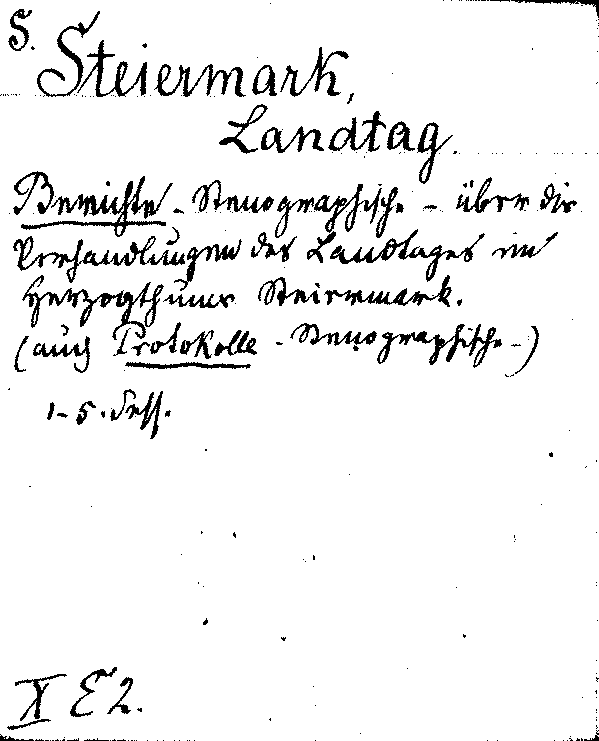 S.
Steiermark,
Landtag.
Berichte - Stenographische - über die
Verhandlungen des Landtages im
Herzogthume Steiermark.
(auch Protokolle - Stenographische -)
1-5. Sess.
X E 2.